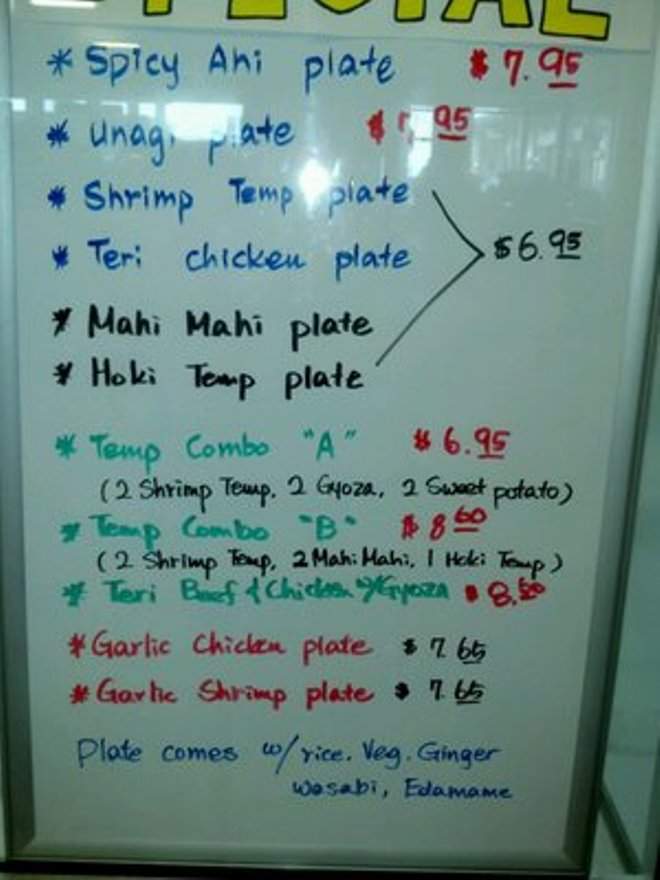 SPECIAL
* Spicy Ahi plate $7.95
* Unagi plate
* Shrimp Temp plate
* Teri chicken plate $6.95
* Mahi Mahi plate
* Hoki Temp plate
* Temp Combo "A" $6.95
(2 Shrimp Temp, 2 Gyoza, 2 Sweet potato)
* Temp Combo "B"
(2 Shrimp Temp, 2 Mahi Mahi, 1 Hoki Temp)
* Teri Beef & Chicken w/Gyoza
* Garlic Chicken plate $7.65
* Garlic Shrimp plate $7.65
Plate comes w/rice. Veg. Ginger
Wasabi, Edamame